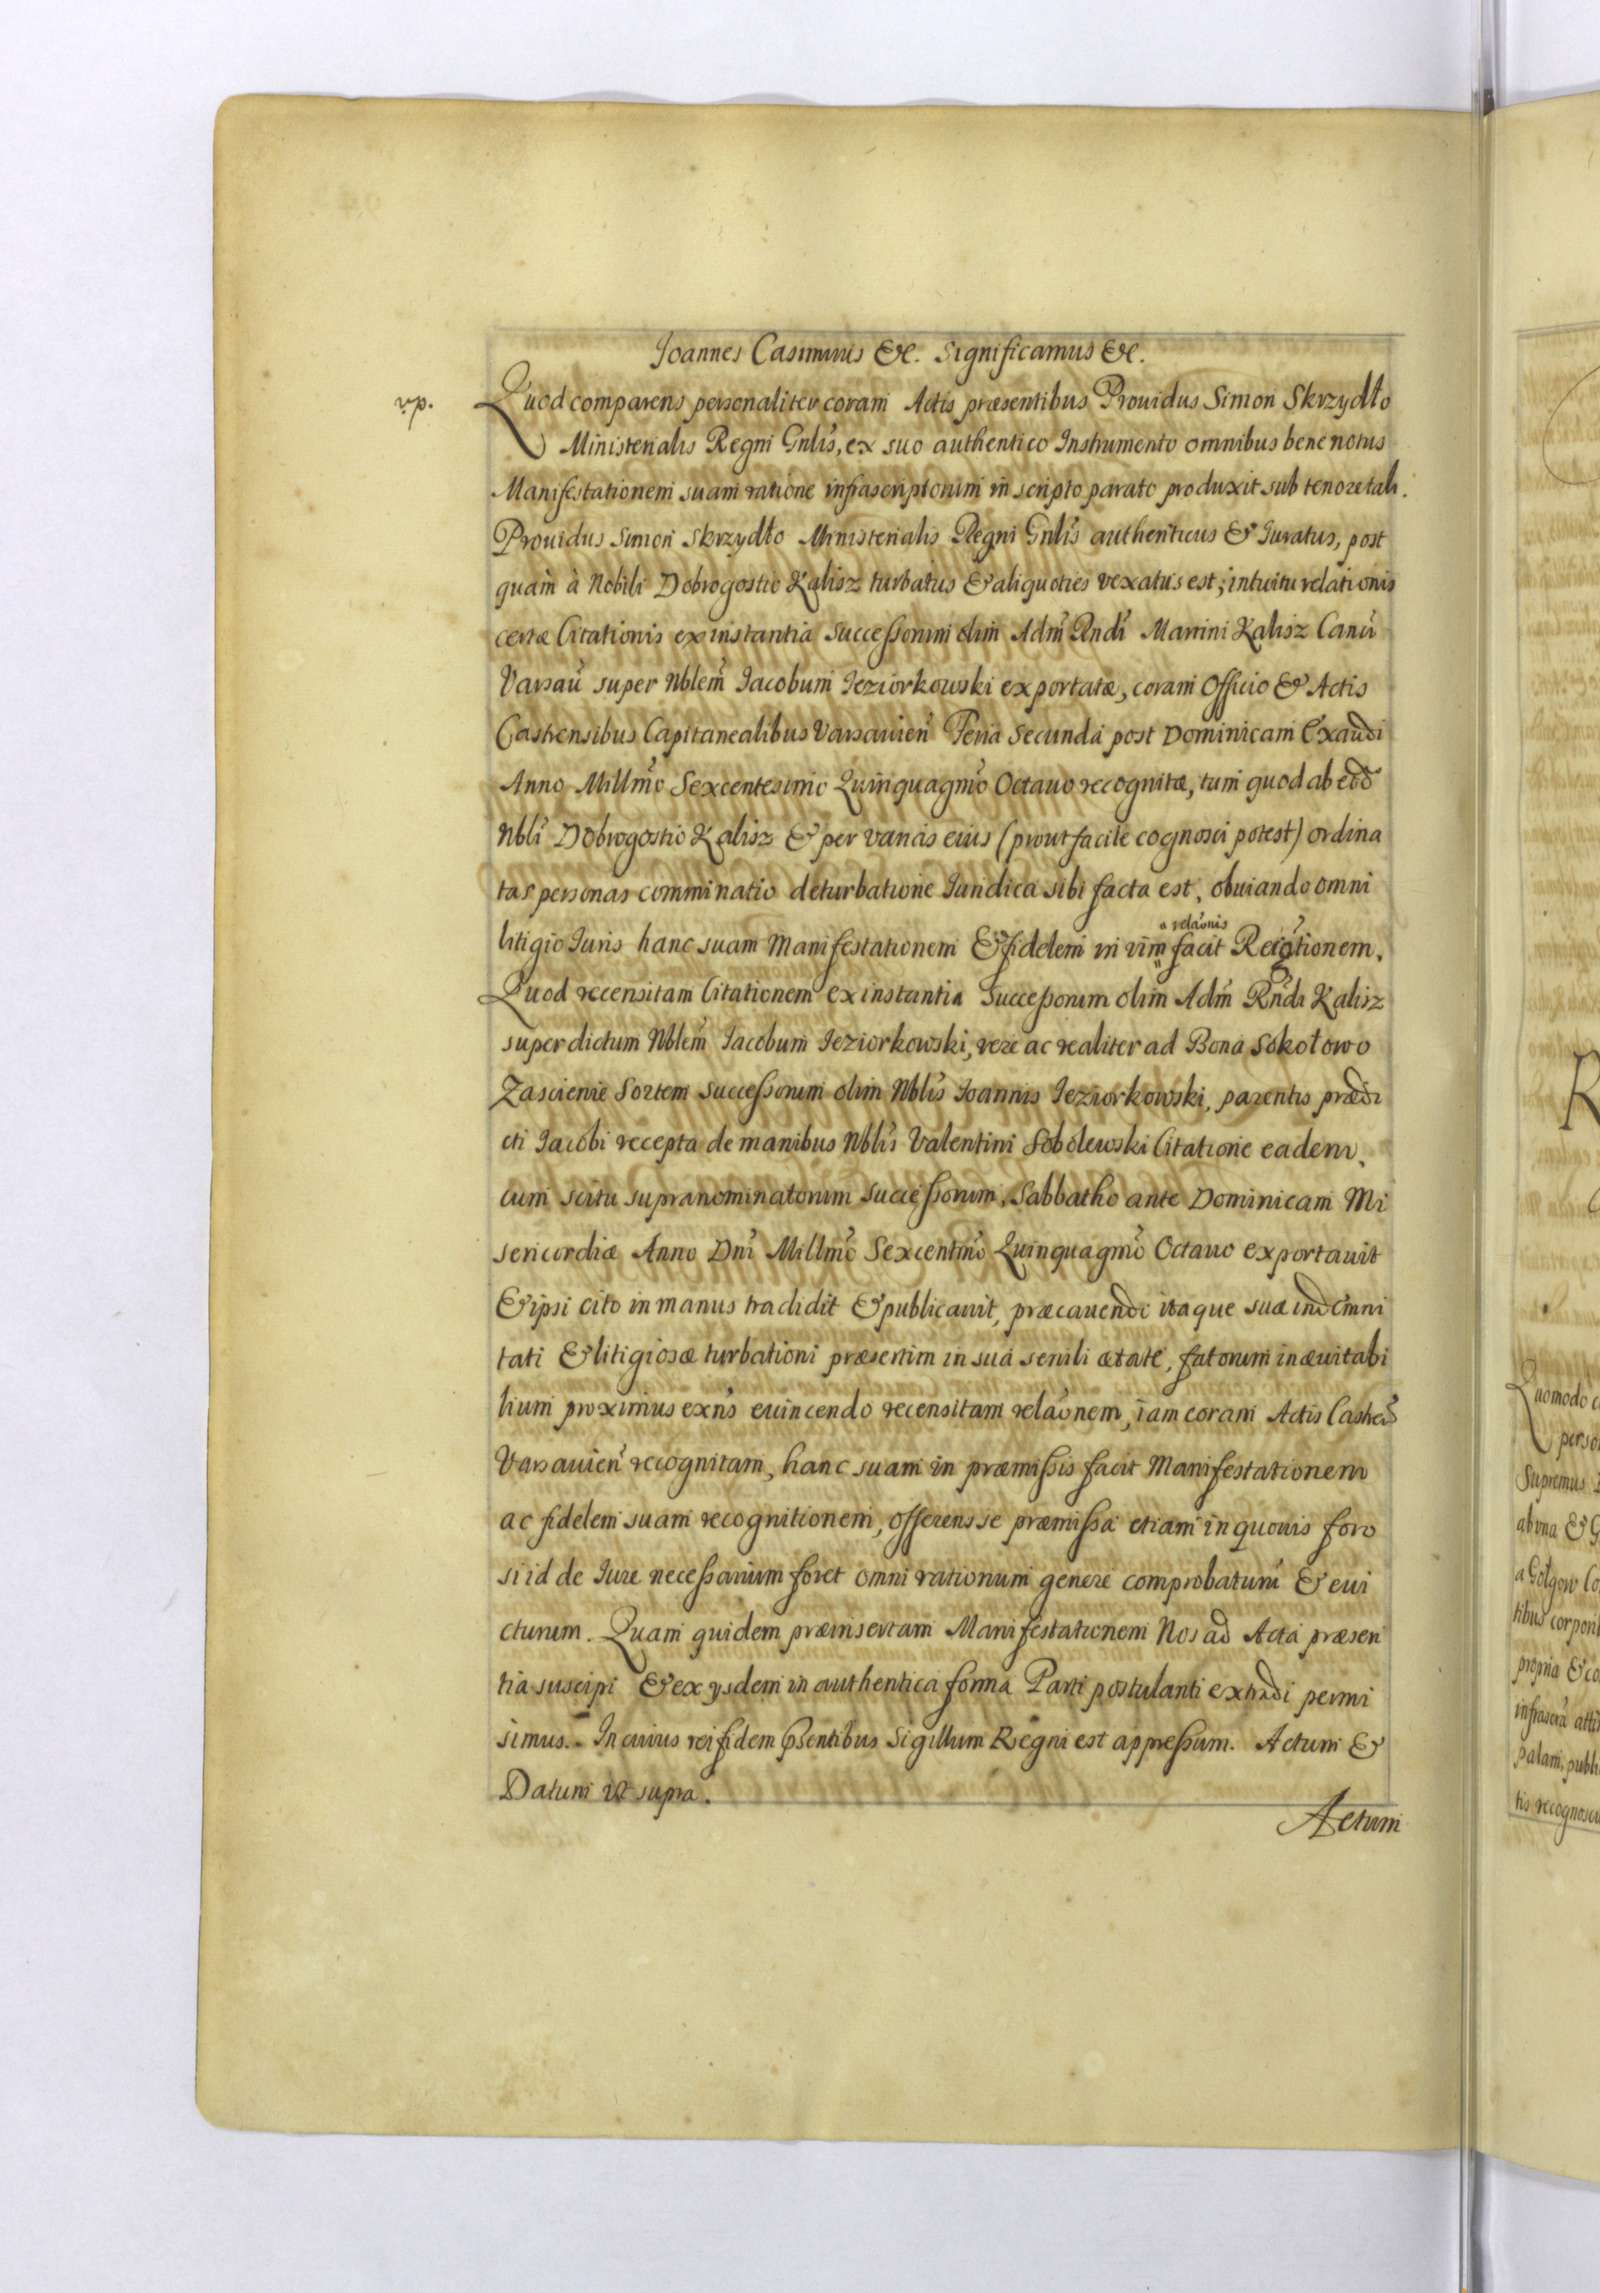 Joannes Casimirus &c. Significamus &c.
Quod comparens personaliter coram Actis præsentibus Prouidus Simon Skrzydło
Ministerialis Regni Gnlis, ex suo authentico Instrumento omnibus bene notus
Manifestationem suam ratione infrascriptorum in scripto parato produxit sub tenore tali.
Prouidus Simon Skrzydło Ministerialis Regni Gnlis authenticus & Iuratus, post
quam à Nobili Dobrogostio Kalisz turbatus & aliquoties vexatus est; intuitu relationis
certæ Citationis ex instantia Successorum olim Adm Rndi Martini Kalisz Canci
Varsau super Nblem Iacobum Jeziorkowski exportatæ, coram Officio & Actis
Castrensibus Capitanealibus Varsauien Feria Secunda post Dominicam Exaudi
Anno Millmo Sexcentesimo Quinquagmo Octauo recognitæ, tum quod ab eod
Nbli Dobrogostio Kalisz & per varias eius (prout facile cognosci potest) ordina
tas personas comminatio deturbatione Iuridica sibi facta est, obuiando omni
litigio Iuris hanc suam Manifestationem & fidelem in vim facit
relaonis
Quod recensitam Citationem ex instantia Successorum olim Adm Rndi Kalisz
super dictum Nblem Iacobum Jeziorkowski, vere ac realiter ad Bona Sokołowo
Zascienie Sortem Successorum olim Nblis Joannis Jeziorkowski, parentis prædi
cti Iacobi recepta de manibus Nblis Valentini Sobolewski Citatione eadem,
cum scitu supranominatorum Successorum, Sabbatho ante Dominicam Mi
sericordiæ Anno Dni Millmo Sexcentmo Quinquagmo Octauo exportauit
& ipsi cito in manus tradidit & publicauit, præcauendo itaque suæ indemni
tati & litigiosæ turbationi præsertim in sua senili ætate, fatorum inæuitabi
lium proximus exns euincendo recensitam relaonem, iam coram Actis Castren
Varsauien recognitam, hanc suam in præmissis facit Manifestationem
ac fidelem suam recognitionem, offerens se præmissa etiam in quouis foro
si id de Iure necessarium foret omni rationum genere comprobaturum & eui
cturum. Quam quidem præinsertam Manifestationem Nos ad Acta præsen
tia suscipi & ex ysdem in authentica forma Parti postulanti extradi permi
simus. In cuius rei fidem psentibus Sigillum Regni est appressum. Actum &
Datum vt supra.
Actum
Quomodo
perso
Supremus
ab vna & G
a Gołgow Co
tibus corpori
propria & co
infrascra atti
palam, publi
tis recognoscu